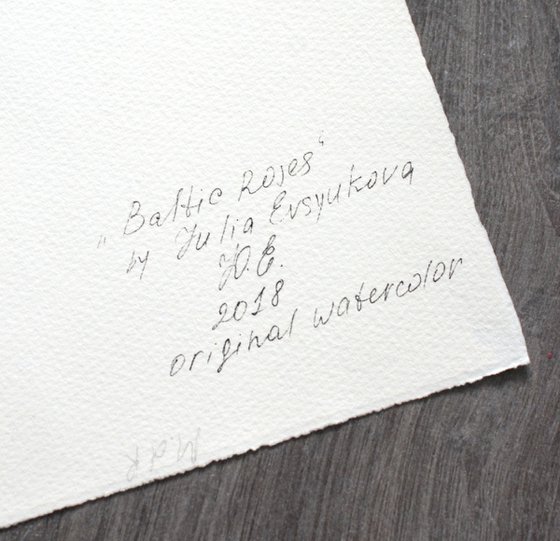 „Baltic Roses“
by Julia Evsyukova
Ю.Е.
2018
original watercolor